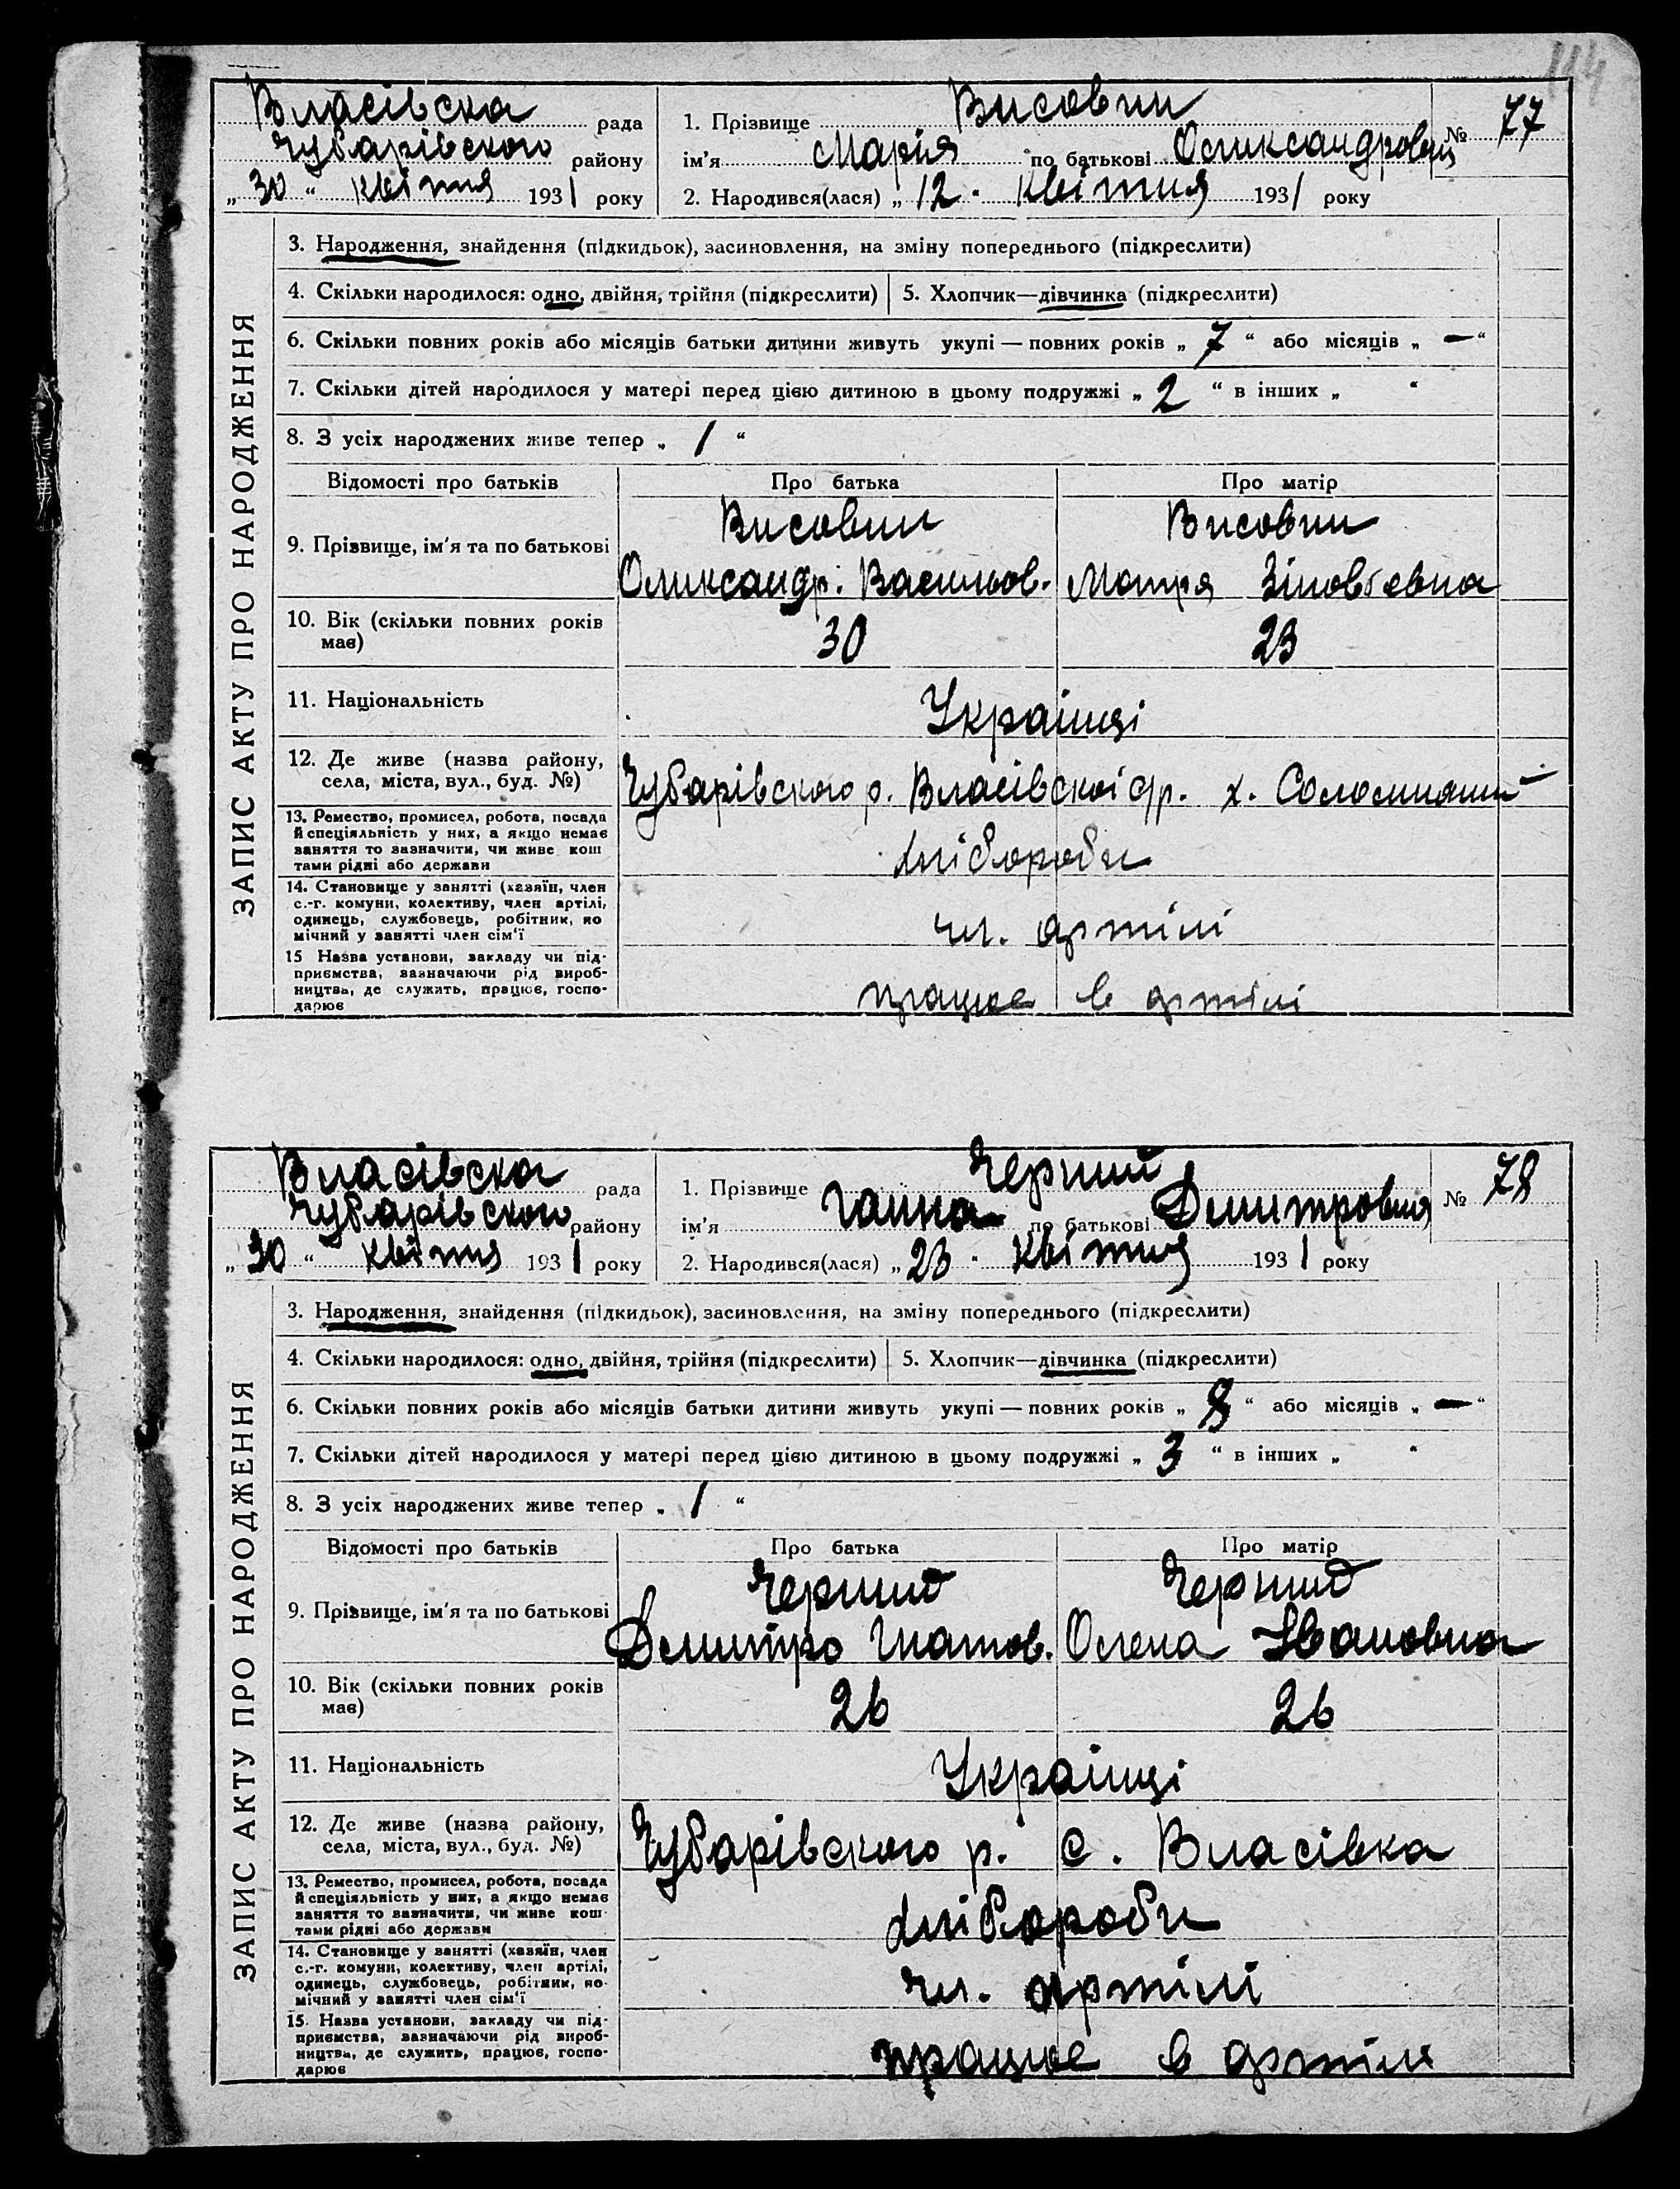 114
Власівска рада
Чубарівского району
„30“ квітня 1931 року
1. Прізвище Висовин № 77
ім'я Марія по батькові Олександровна
2. Народився(лася) „12“ квітня 1931 року
ЗАПИС АКТУ ПРО НАРОДЖЕННЯ
3. Народження, знайдення (підкидьок), засиновлення, на зміну попереднього (підкреслити)
4. Скільки народилося: одно, двійня, трійня (підкреслити) 5. Хлопчик—дівчинка (підкреслити)
6. Скільки повних років або місяців батьки дитини живуть укупі — повних років „7“ або місяців „—“
7. Скільки дітей народилося у матері перед цією дитиною в цьому подружжі „2“ в інших „ “
8. З усіх народжених живе тепер „1“
Відомості про батьків Про батька Про матір
9. Прізвище, ім'я та по батькові
Висовин Висовин
Олександр. Васильов. Мотря Зіновьевна
10. Вік (скільки повних років має) 30 23
11. Національність Українці
12. Де живе (назва району,
села, міста, вул., буд. №)
Чубарівского р. Власівскої с/р. х.
13. Ремество, промисел, робота, посада
й спеціяльність у них, а якщо немає
заняття то зазначити, чи живе кош
тами рідні або держави
хлібороби
14. Становище у занятті (хазяїн, член
с.-г. комуни, колективу, член артілі,
одинець, службовець, робітник, по
мічний у занятті член сім'ї
чл. артілі
15 Назва установи, закладу чи під-
приємства, зазначаючи рід вироб-
ництва, де служить, працює, госпо-
дарює
працює в артілі
Власівска рада
Чубарівского району
„30“ квітня 1931 року
1. Прізвище Черний № 78
ім'я Ганна по батькові Дмитровна
2. Народився(лася) „23“ квітня 1931 року
ЗАПИС АКТУ ПРО НАРОДЖЕННЯ
3. Народження, знайдення (підкидьок), засиновлення, на зміну попереднього (підкреслити)
4. Скільки народилося: одно, двійня, трійня (підкреслити) 5. Хлопчик—дівчинка (підкреслити)
6. Скільки повних років або місяців батьки дитини живуть укупі — повних років „8“ або місяців „—“
7. Скільки дітей народилося у матері перед цією дитиною в цьому подружжі „3“ в інших „ “
8. З усіх народжених живе тепер „1“
Відомості про батьків Про батька Про матір
9. Прізвище, ім'я та по батькові
Черний Черний
Дмитро Гнатов. Олена Івановна
10. Вік (скільки повних років має) 26 26
11. Національність Українці
12. Де живе (назва району,
села, міста, вул., буд. №)
Чубарівского р. с. Власівка
13. Ремество, промисел, робота, посада
й спеціяльність у них, а якщо немає
заняття то зазначити, чи живе кош
тами рідні або держави
хлібороби
14. Становище у занятті (хазяїн, член
с.-г. комуни, колективу, член артілі,
одинець, службовець, робітник, по-
мічний у занятті член сім'ї
чл. артілі
15. Назва установи, закладу чи під-
приємства, зазначаючи рід вироб-
ництва, де служить, працює, госпо-
дарює
працює в артілі